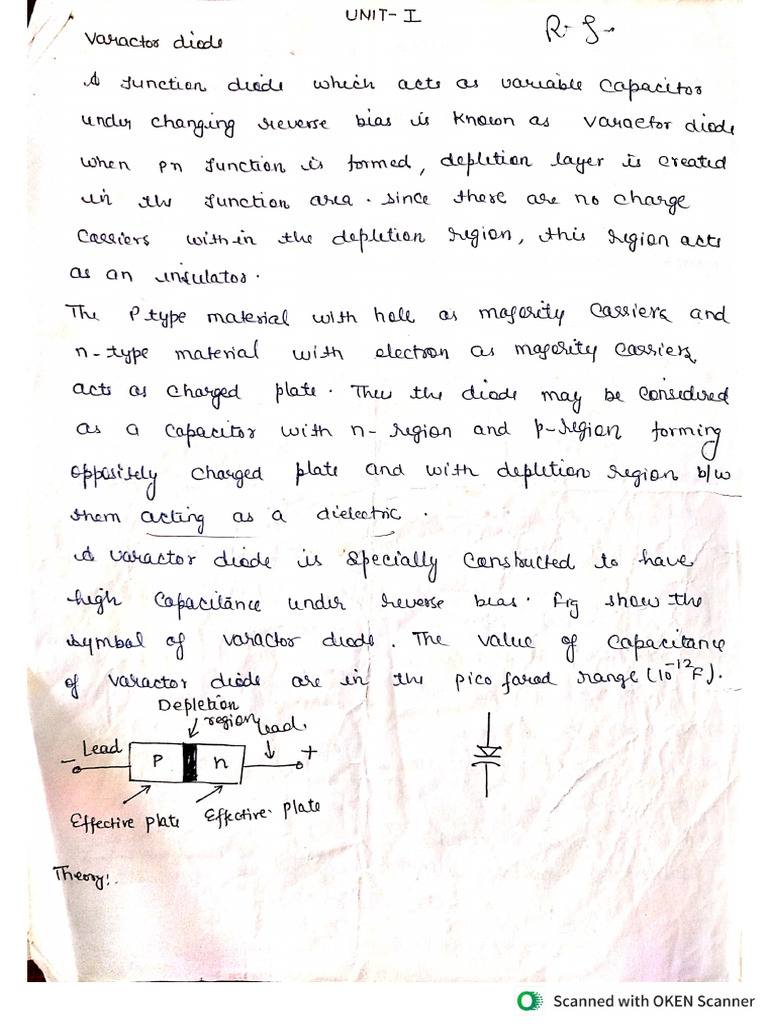 UNIT-I
R.S.
Varactor diode
A Junction diode which acts as variable capacitor
under changing reverse bias is known as varactor diode
when pn junction is formed, depletion layer is created
in the junction area. since there are no charge
carriers with-in the depletion region, this region acts
as an insulator.
The P type material with hole as majority carriers and
n-type material with electron as majority carriers
acts as charged plate. Thus the diode may be considered
as a capacitor with n-region and p-region forming
oppositely charged plate and with depletion region b/w
them acting as a dielectric.
A varactor diode is specially constructed to have
high capacitance under reverse bias. fig show the
symbol of varactor diode. The value of capacitance
of varactor diode are in the pico farad range (10⁻¹²F).
Depletion
region
Lead
Lead.
- P n +
Effective plate
Effective plate
Theory:.
Scanned with OKEN Scanner